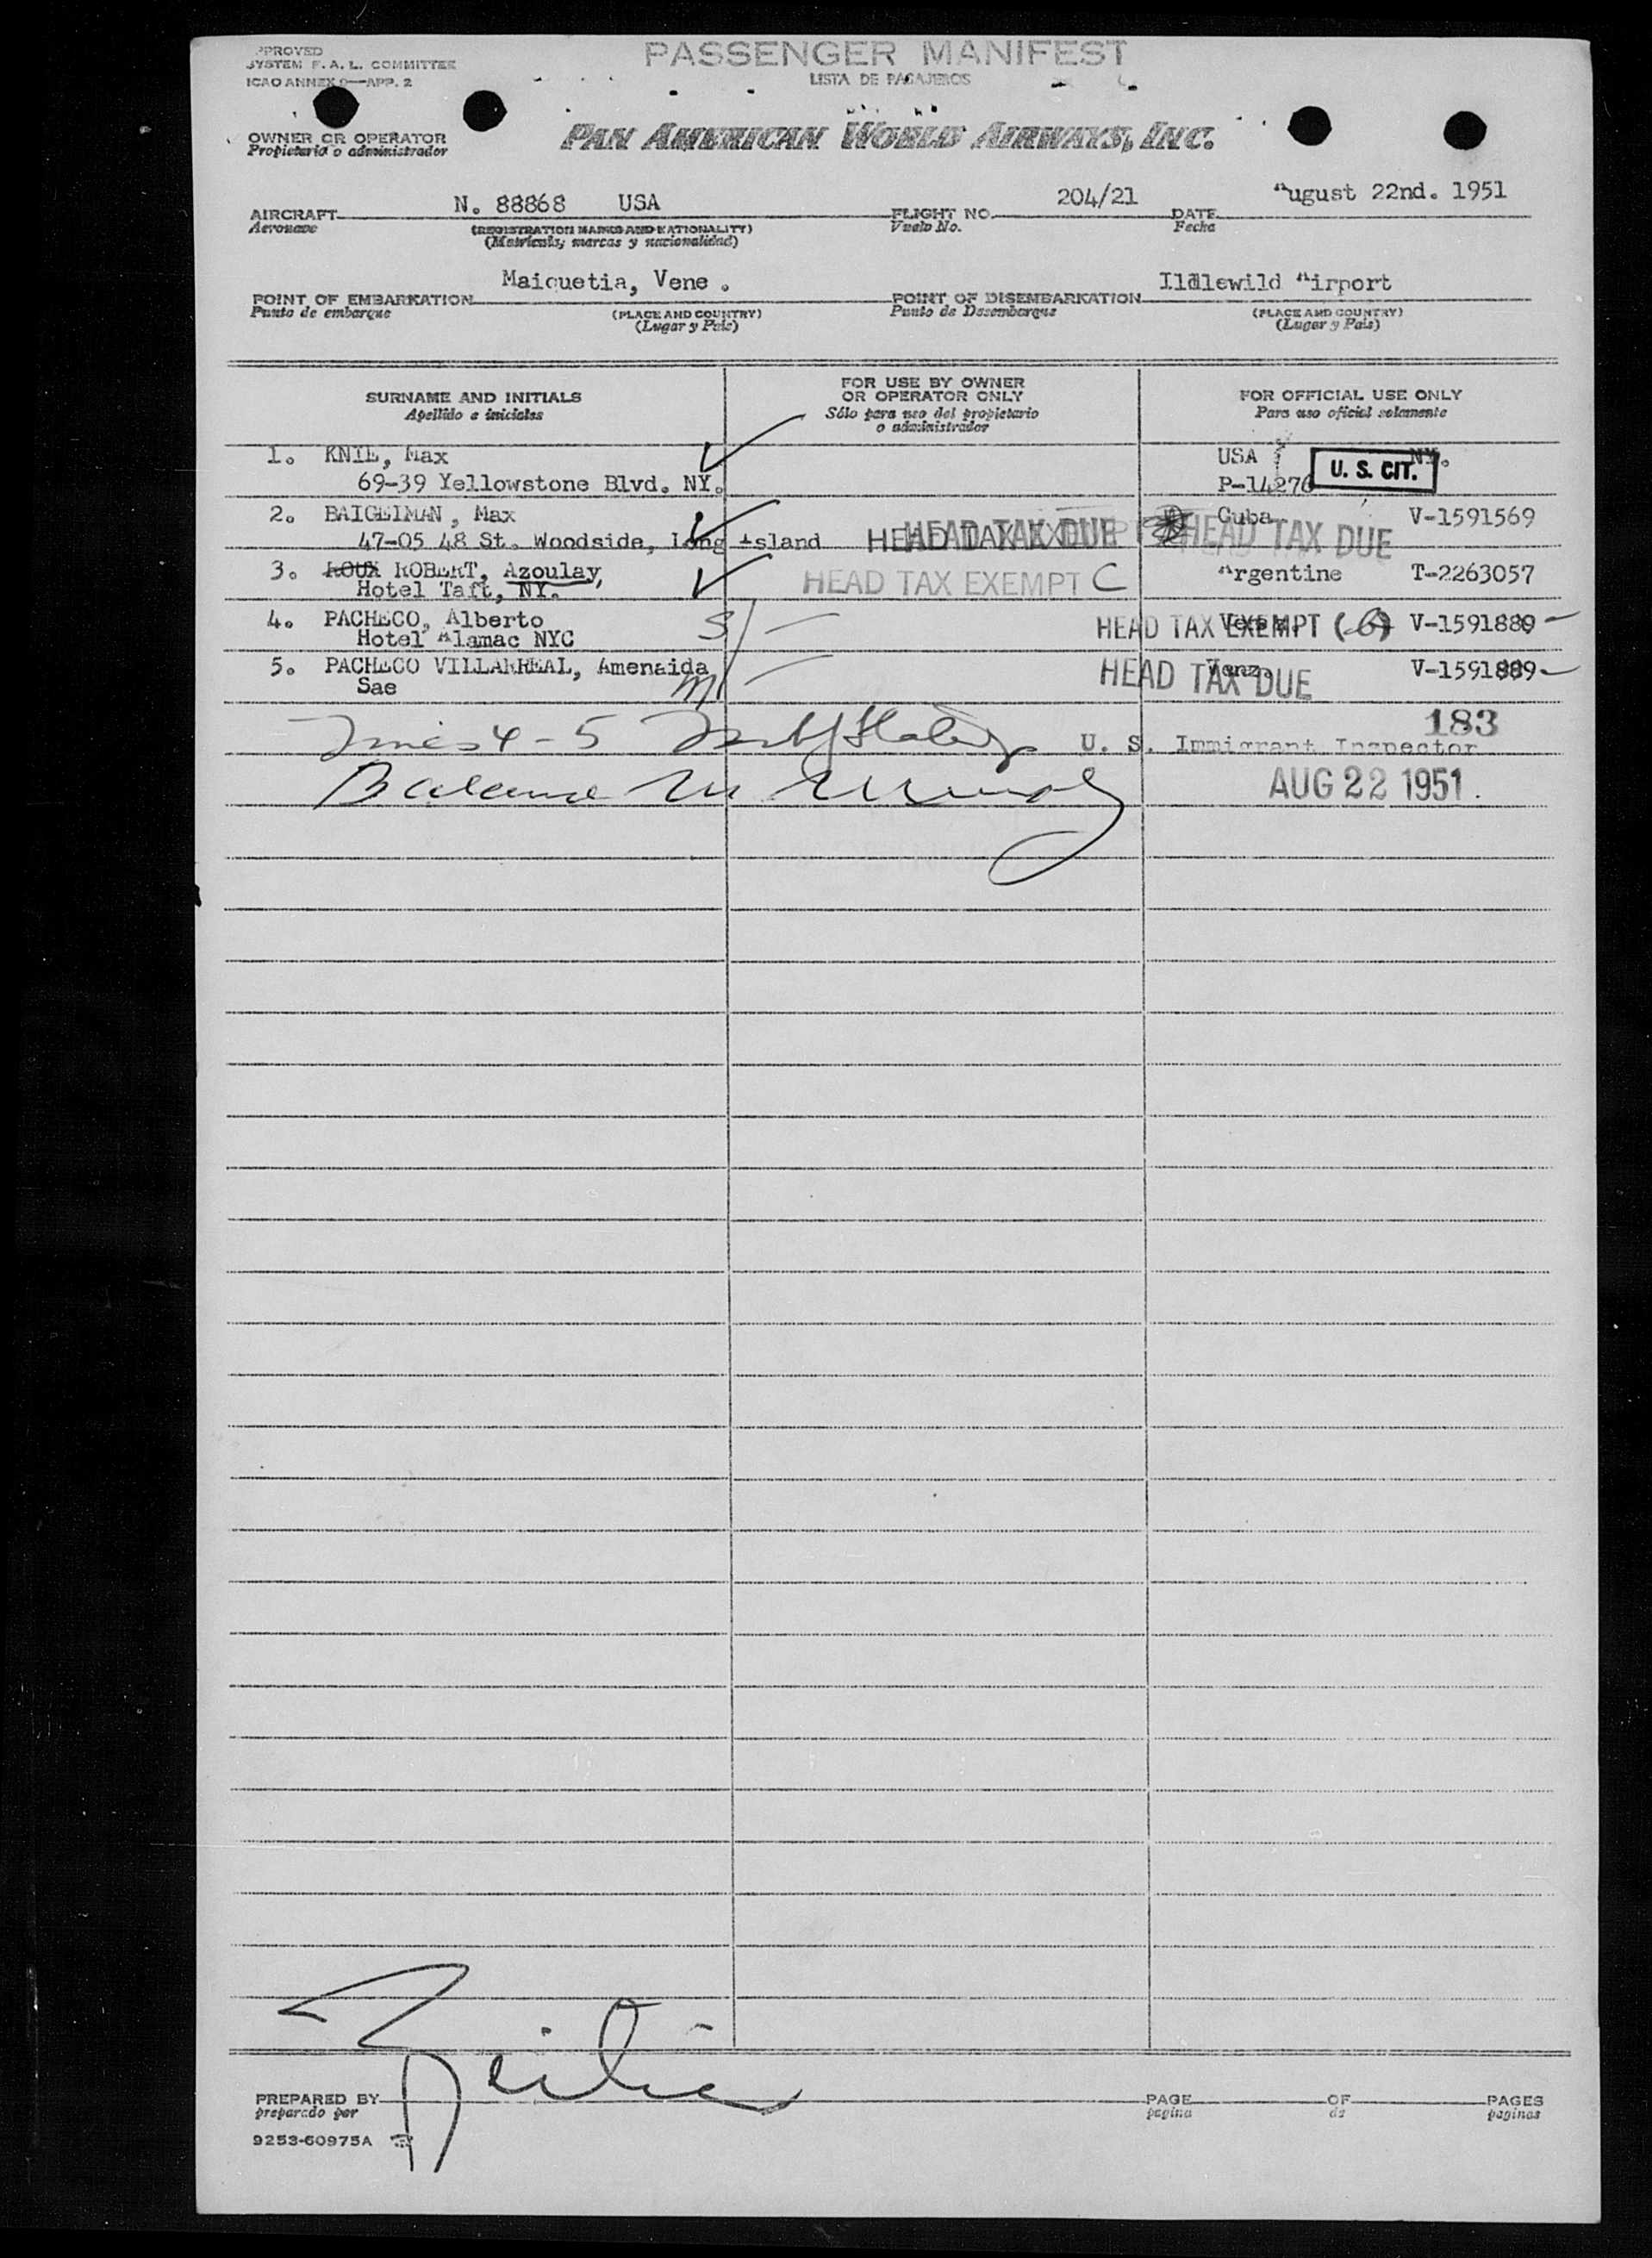 PPROVED
SYSTEM F. A. L. COMMITTEE
ICAO ANNEX 9—APP. 2
PASSENGER MANIFEST
LISTA DE PASAJEROS
OWNER OR OPERATOR
Propietario o administrador
PAN AMERICAN WORLD AIRWAYS, INC.
AIRCRAFT N. 88868 USA FLIGHT NO. 204/21 DATE August 22nd. 1951
Aeronave (REGISTRATION MARKS AND NATIONALITY) Vuelo No. Fecha
(Matrícula, marcas y nacionalidad)
POINT OF EMBARKATION Maiquetia, Vene . POINT OF DISEMBARKATION Ildlewild Airport
Punto de embarque (PLACE AND COUNTRY) Punto de Desembarque (PLACE AND COUNTRY)
(Lugar y País) (Lugar y País)
SURNAME AND INITIALS
Apellido e iniciales
FOR USE BY OWNER
OR OPERATOR ONLY
Sólo para uso del propietario
o administrador
FOR OFFICIAL USE ONLY
Para uso oficial solamente
1. KNIE, Max USA NY.
69-39 Yellowstone Blvd. NY. P-14276 U. S. CIT.
2. BAIGELMAN, Max Cuba V-1591569
47-05 48 St. Woodside, Long Island HEAD TAX DUE HEAD TAX DUE
3. ROUX ROBERT, Azoulay, HEAD TAX EXEMPT C Argentine T-2263057
Hotel Taft, NY.
4. PACHECO, Alberto S HEAD TAX EXEMPT (6) V-1591889
Hotel Alamac NYC
5. PACHECO VILLARREAL, Amenaida HEAD TAX DUE Venz. V-1591889
Sae M
183
Lines 4-5 U. S. Immigrant Inspector
Balance AUG 22 1951.
PREPARED BY PAGE OF PAGES
preparado por pagina de paginas
9253-60975A